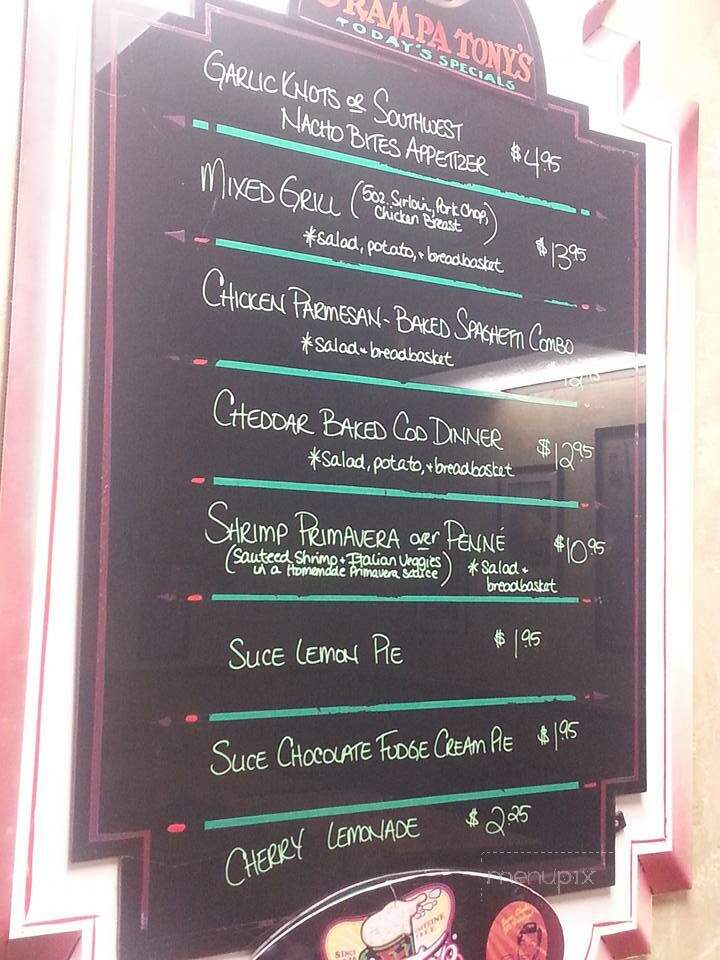 GRAMPA TONY'S
TODAY'S SPECIALS
GARLIC KNOTS OR SOUTHWEST
NACHO BITES APPETIZER $4.95
MIXED GRILL (5oz. Sirloin, Pork Chop,
Chicken Breast)
*salad, potato, + breadbasket $13.95
CHICKEN PARMESAN - BAKED SPAGHETTI COMBO
*salad + breadbasket
CHEDDAR BAKED COD DINNER $12.95
*Salad, potato, + breadbasket
SHRIMP PRIMAVERA over PENNÉ $10.95
(Sauteed Shrimp + Italian Veggies
in a Homemade Primavera sauce)
*Salad +
breadbasket
SLICE LEMON PIE $1.95
SLICE CHOCOLATE FUDGE CREAM PIE $1.95
CHERRY LEMONADE $2.25
menupix